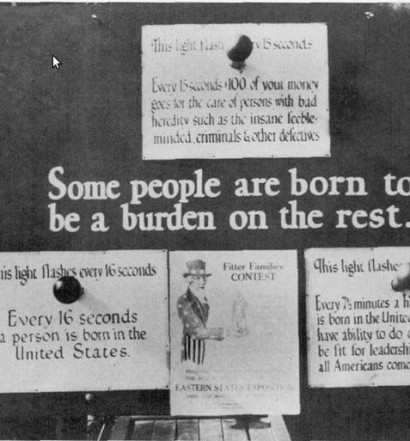 This light flash ry 15 seconds
Every 15 seconds $100 of your money
goes for the care of persons with bad
heredity such as the insane feeble-
minded, criminals & other defectives
Some people are born to
be a burden on the rest.
is light flashes every 16 seconds
Every 16 seconds
a person is born in the
United States.
Fitter Families
CONTEST
EASTERN STATES EXPOSITION
This light flashes
Every 7½ minutes a h
is born in the Unite
have ability to do c
be fit for leadershi
all Americans come